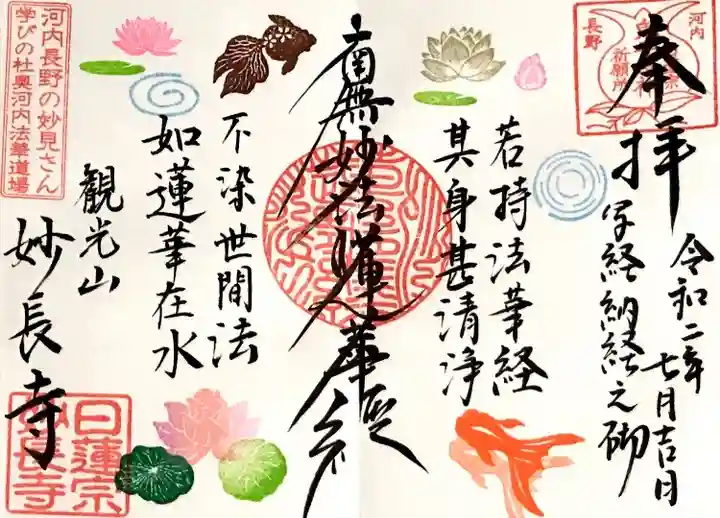 奉拝
河内
長野
祈願所
令和二年
七月吉日
写経納経之御
若持法華経
其身甚清浄
南無妙法蓮華経
不染世間法
如蓮華在水
観光山
妙長寺
河内長野の妙見さん
学びの杜奥河内法華道場
日蓮宗
妙長寺